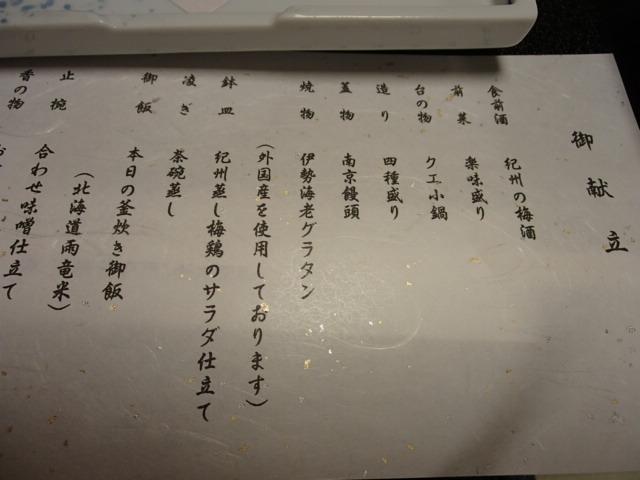 御献立
食前酒 紀州の梅酒
前菜 楽味盛り
台の物 クエ小鍋
造り 四種盛り
蓋物 南京饅頭
焼物 伊勢海老グラタン
(外国産を使用しております)
鉢皿 紀州蒸し梅鶏のサラダ仕立て
凌ぎ 茶碗蒸し
御飯 本日の釜炊き御飯
(北海道雨竜米)
止椀 合わせ味噌仕立て
香の物